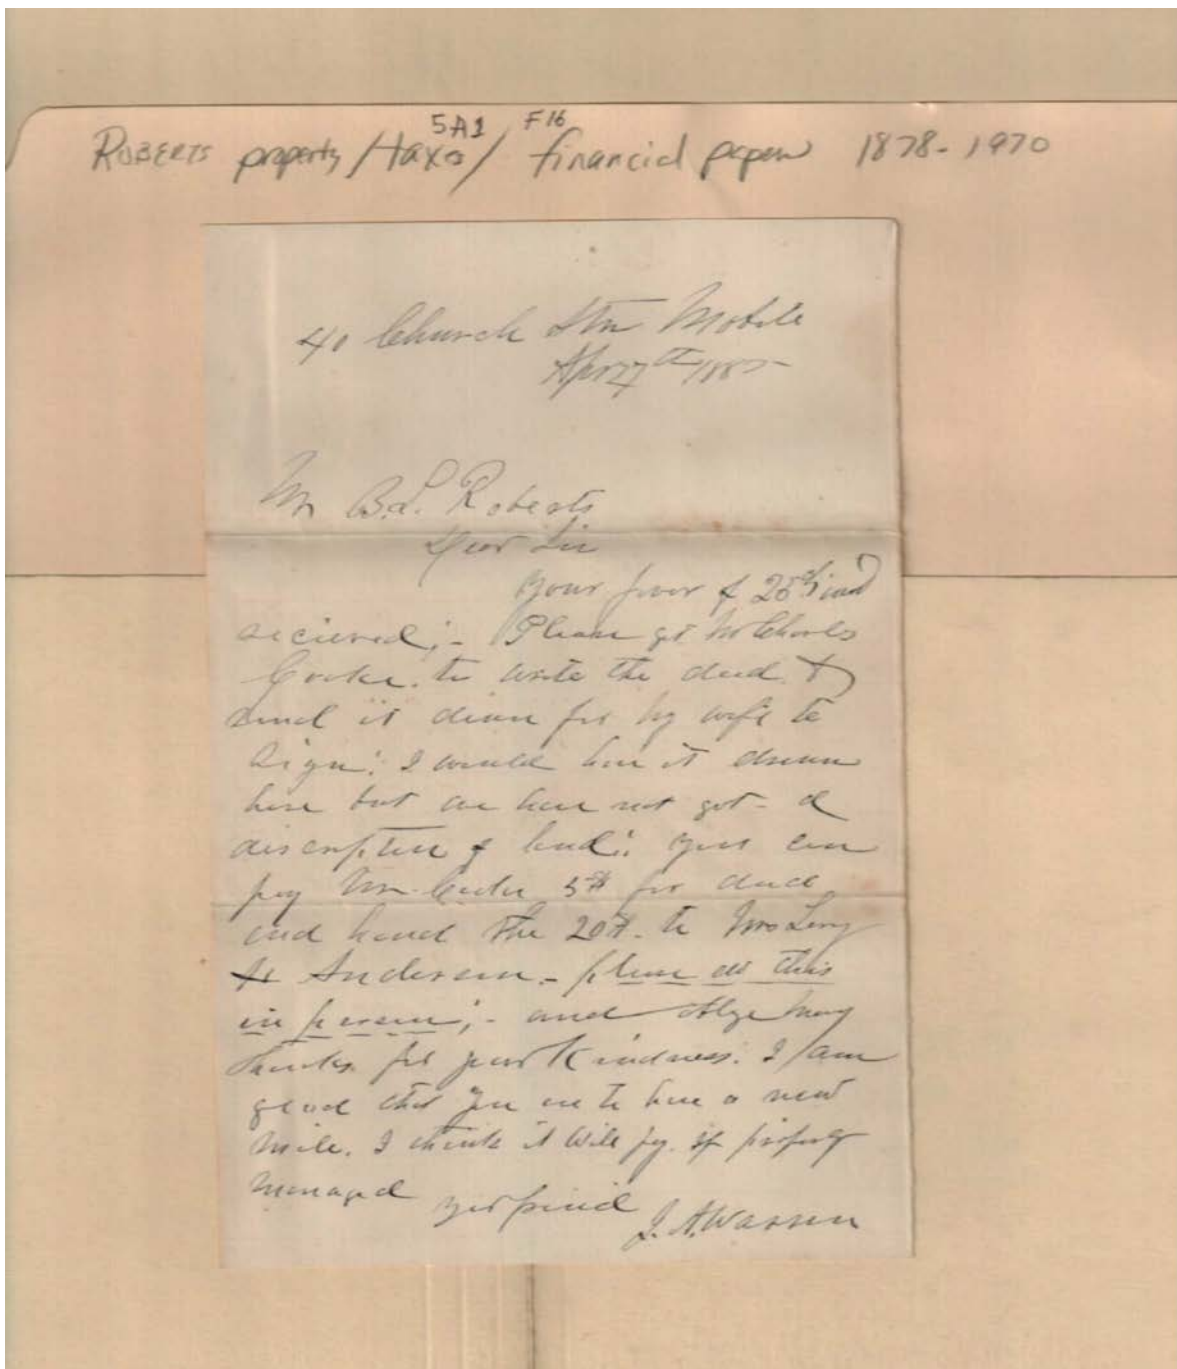 5A1 F16
ROBERTS property/taxes/ financial papers 1878-1970
40 Church Str Mobile
Apr 27th 1885
Mr B.L. Roberts
Dear Sir
Your favor of 25th inst
recieved;- Please get Mr Charles
to write the deed &
send it down for my wife to
sign: I would have it drawn
here but we have not got a
discription of land: you can
pay Mr 5$ for deed
and hand the 20$. to Mrs
Anderson - please do this
in person;- and many
thanks for your Kindness. I am
glad that you are to have a new
mill. I think it will pay if properly
managed
Yor friend J. A. Warren